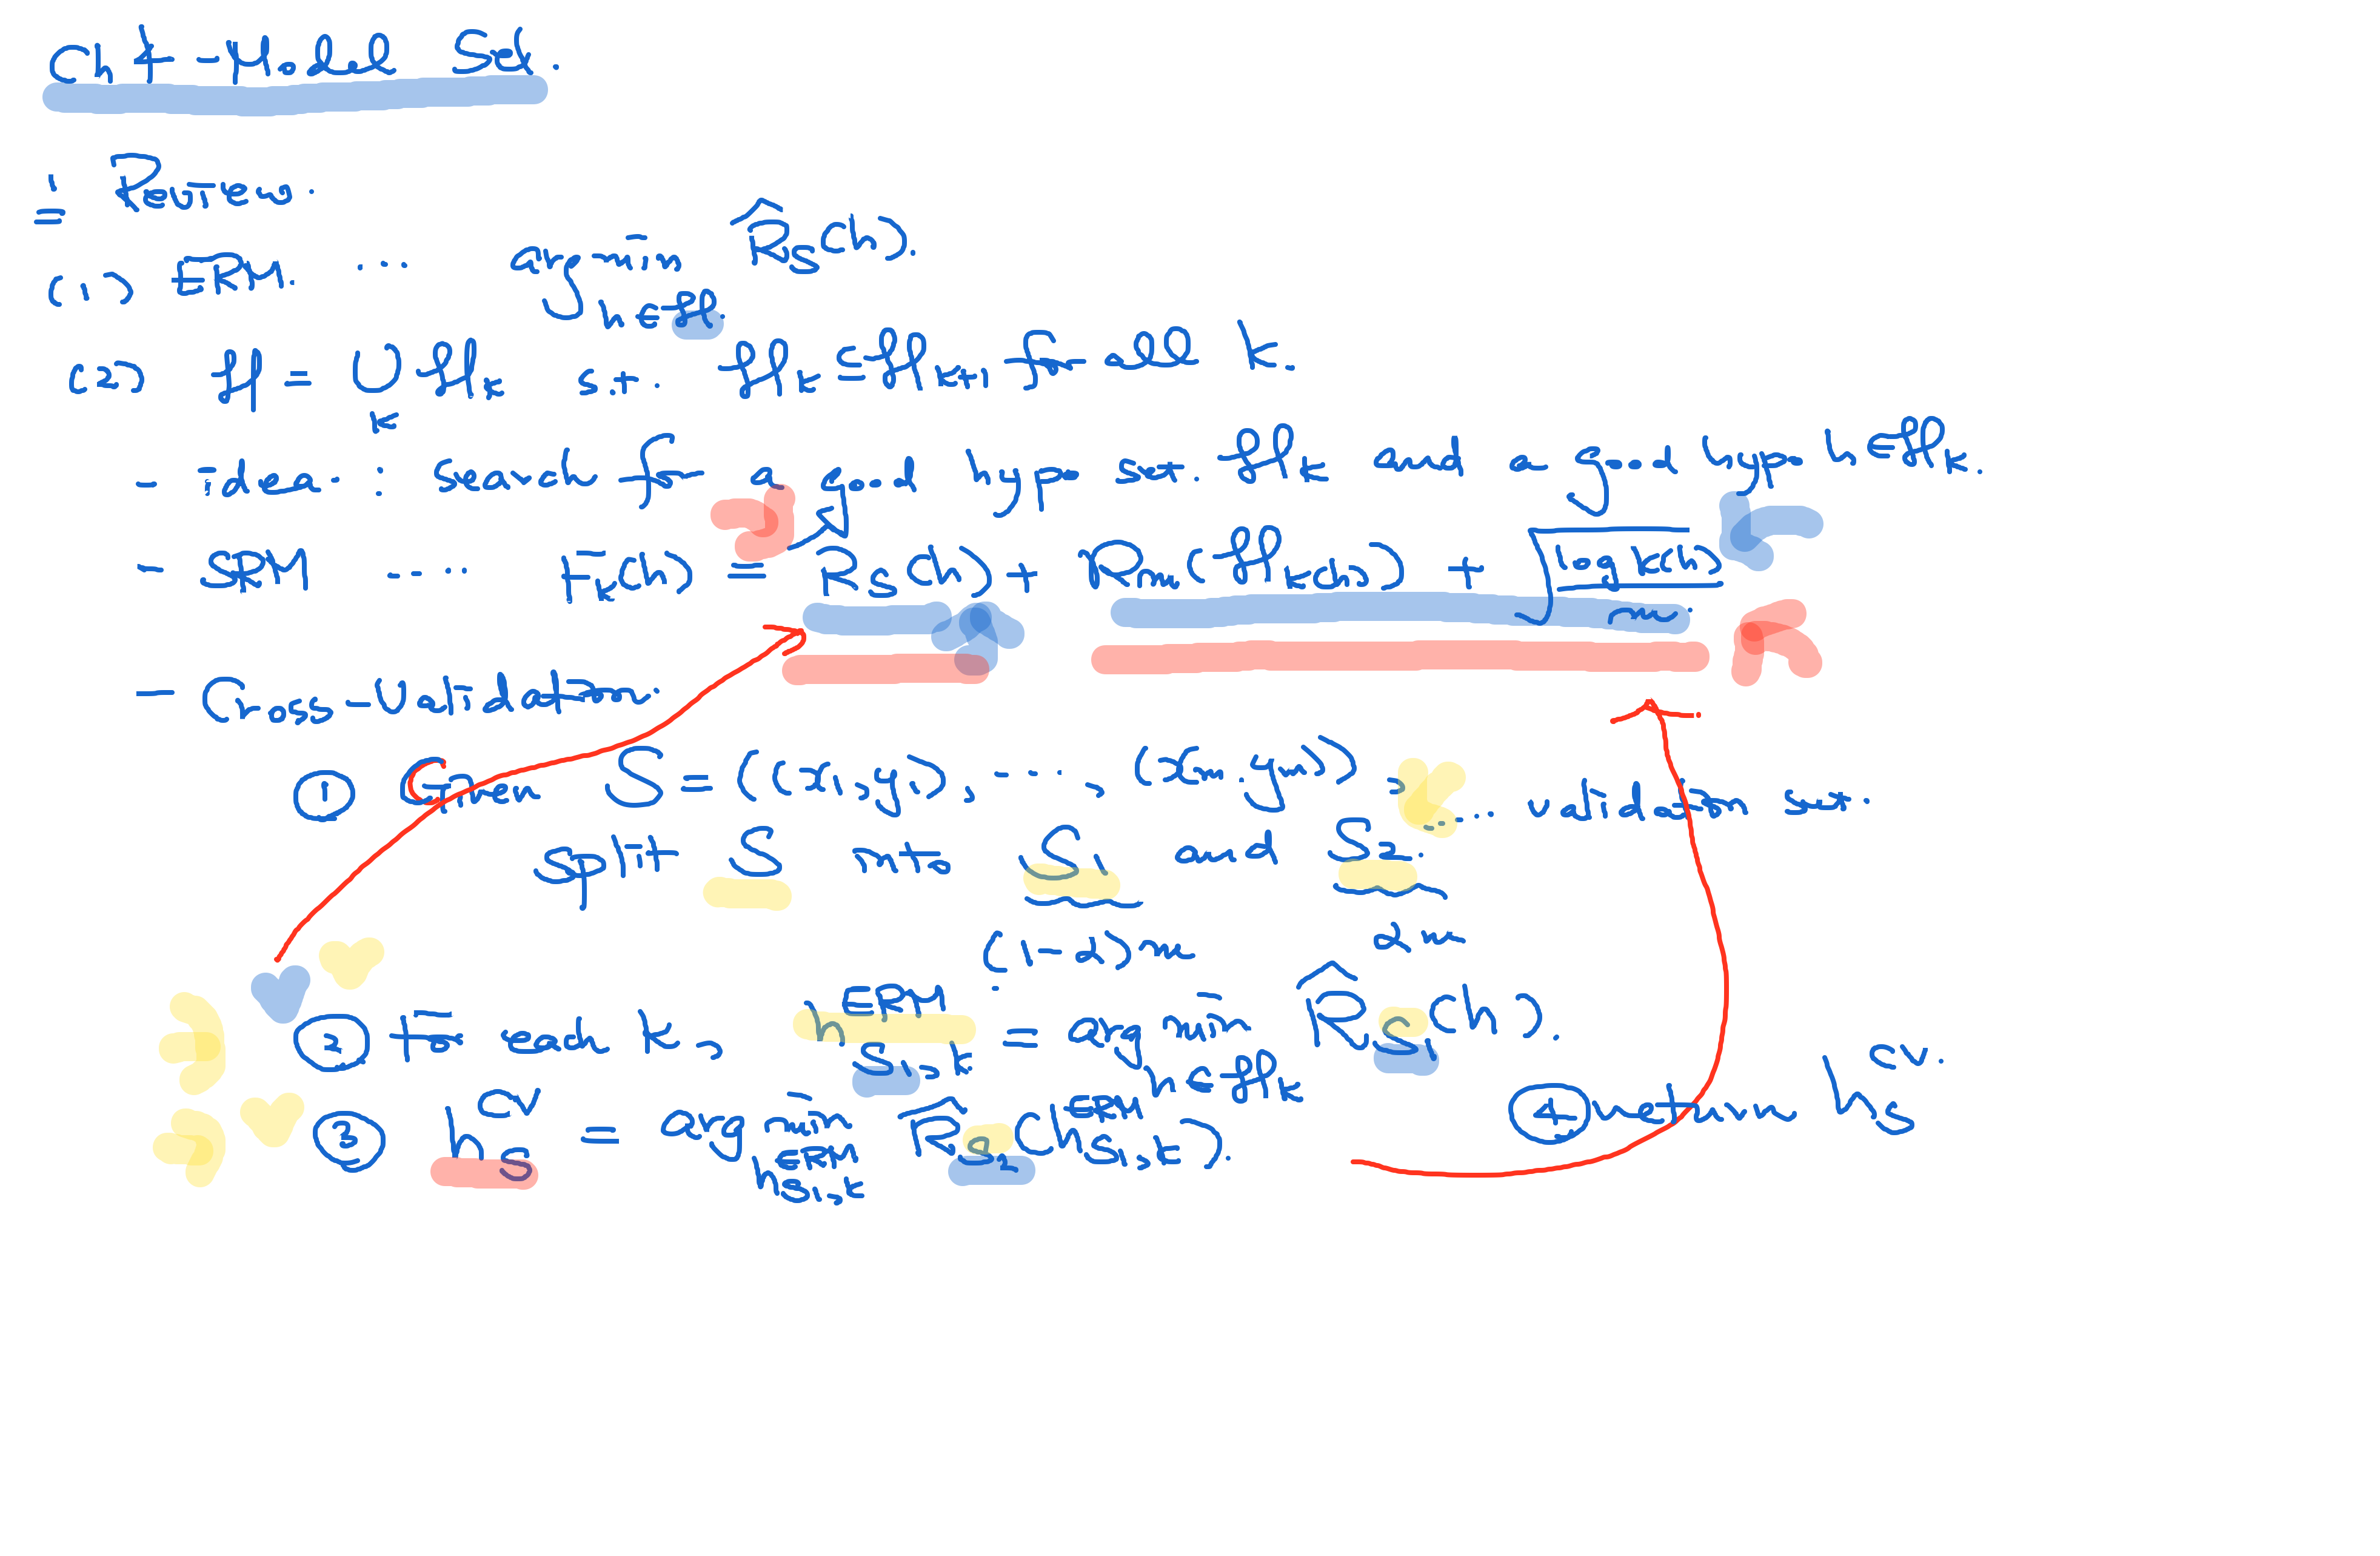 Ch 4 - Model Sel.
1. Review.
(1) ERM. ... argmin_{h∈ℋ} R̂_S(h).
(2) ℋ = ∪_k ℋ_k s.t. ℋ_k ⊆ ℋ_{k+1} for all k.
- idea : search for a good hyp set. ℋ_k and a good hypo h∈ℋ_k.
- SRM .... F_k(h) = R̂_S(h) + R_m(ℋ_{k(h)}) + √(log k(h) / m).
- Cross-Validation.
① Given S = ((x_1, y_1), ..., (x_m, y_m)),
.... validation set.
split S into S_1 and S_2.
(1-α)m αm
② For each k, h^{ERM}_{S_1,k} = argmin_{h∈ℋ_k} R̂_{S_1}(h).
③ h^{CV}_S = argmin_{h^{ERM}_{S_1,k}} R̂_{S_2}(h^{ERM}_{S_1,k}). ④ return h^{CV}_S.